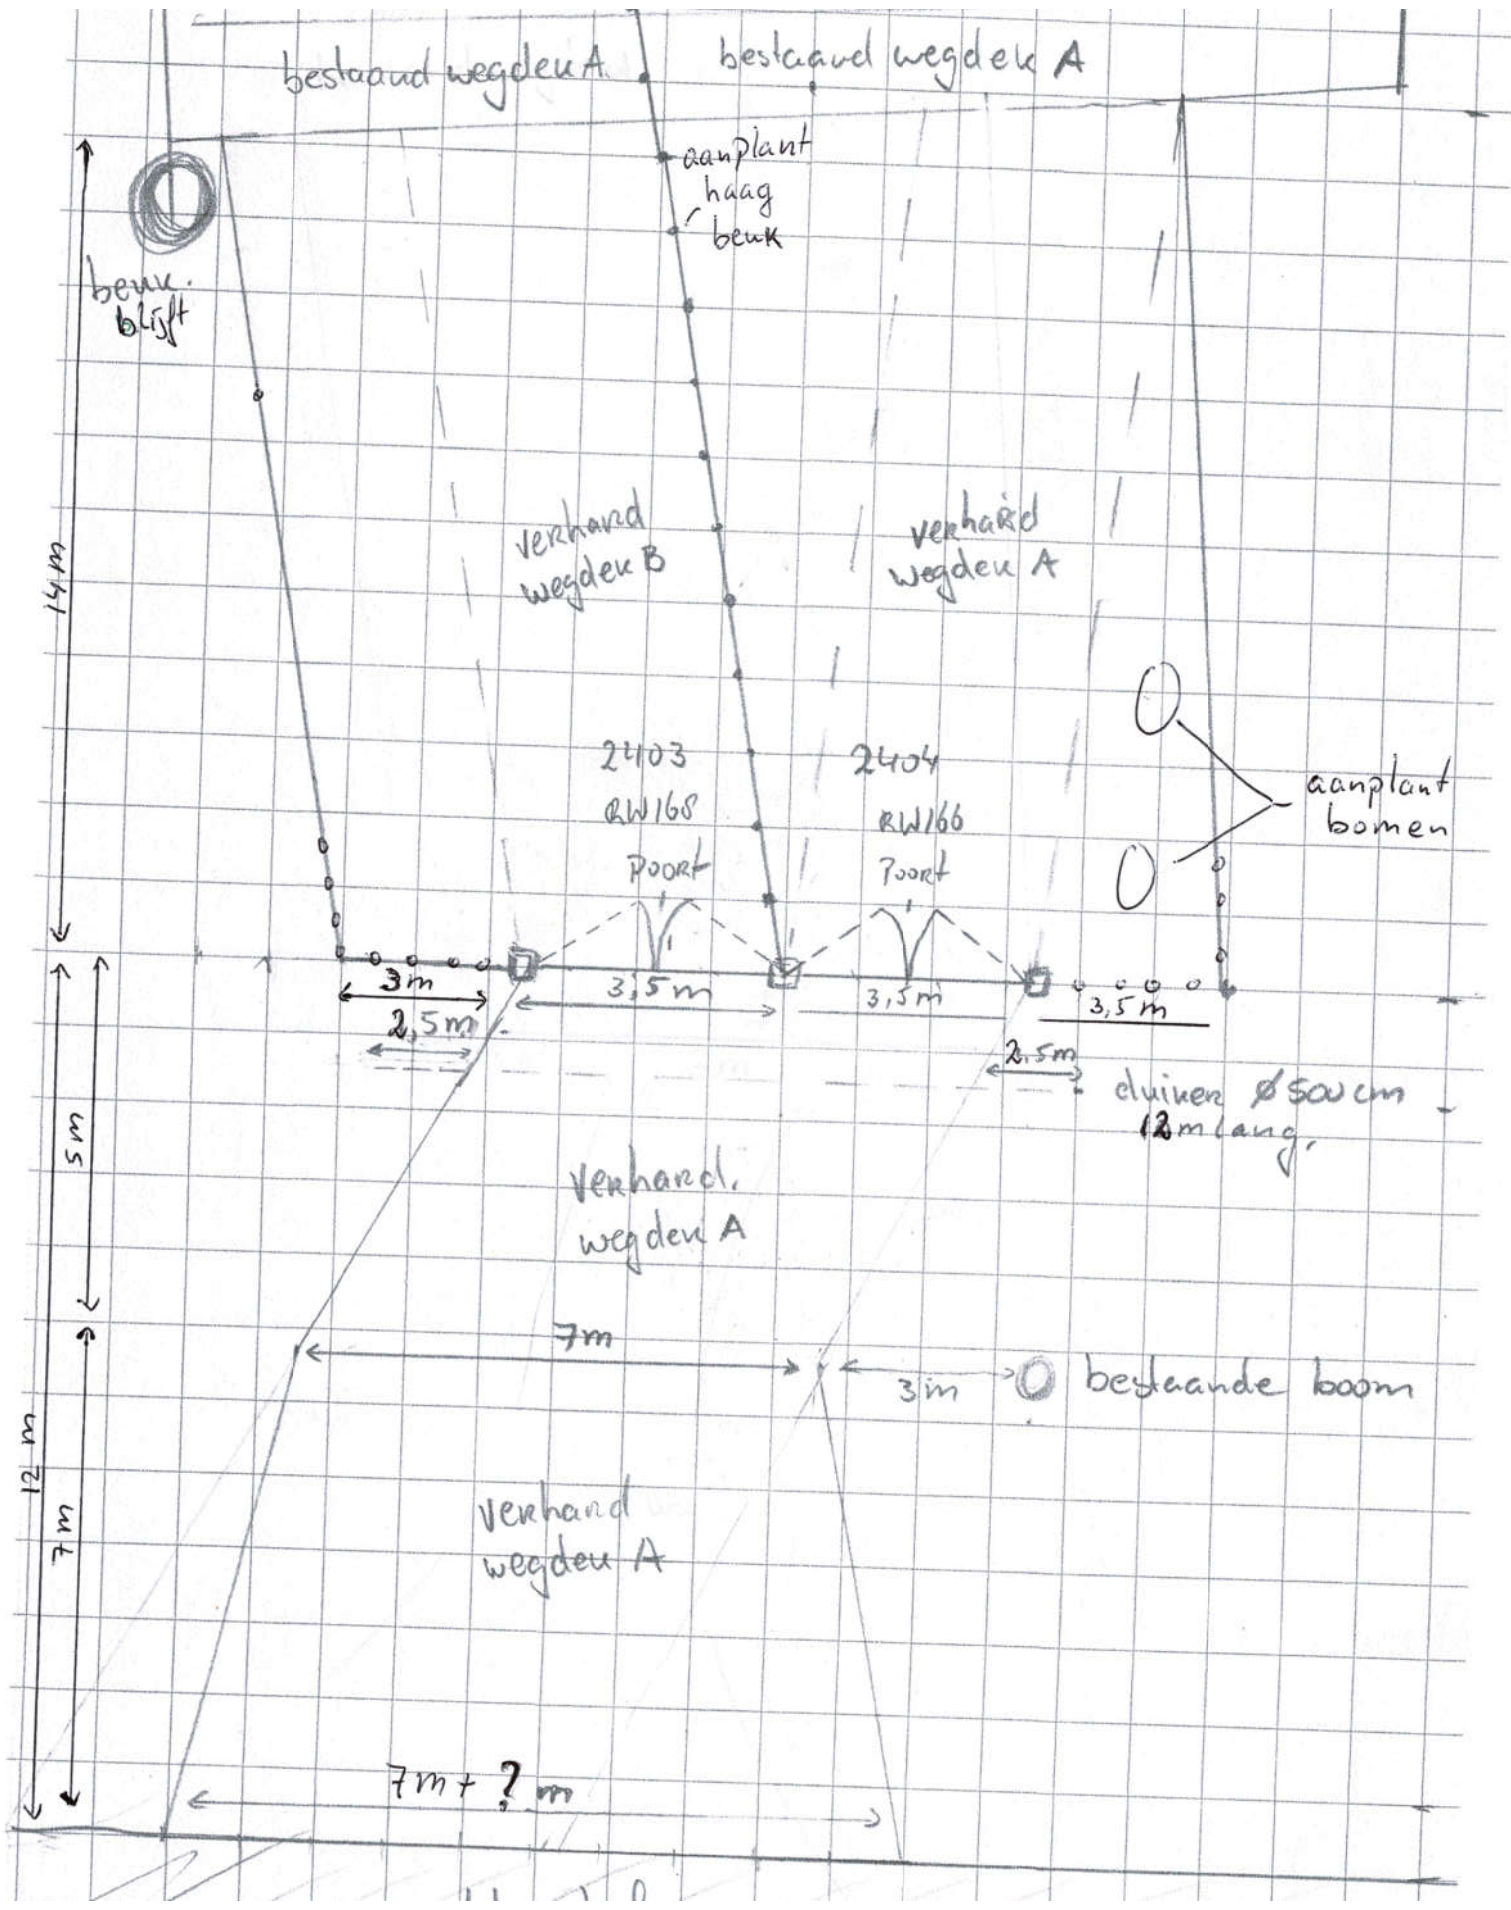 bestaand wegdek A.
bestaand wegdek A
aanplant
haag
beuk
beuk.
blijft
14 m
verhard
wegdek B
verhard
wegdek A
2403
RW168
Poort
2404
RW166
Poort
aanplant
bomen
3m
3,5m
3,5m
3,5m
2,5m
2.5m
duiker Ø 500 cm
12m lang.
5m
verhard.
wegdek A
7m
3m
bestaande boom
12 m
7m
verhard
wegdek A
7m + ? m